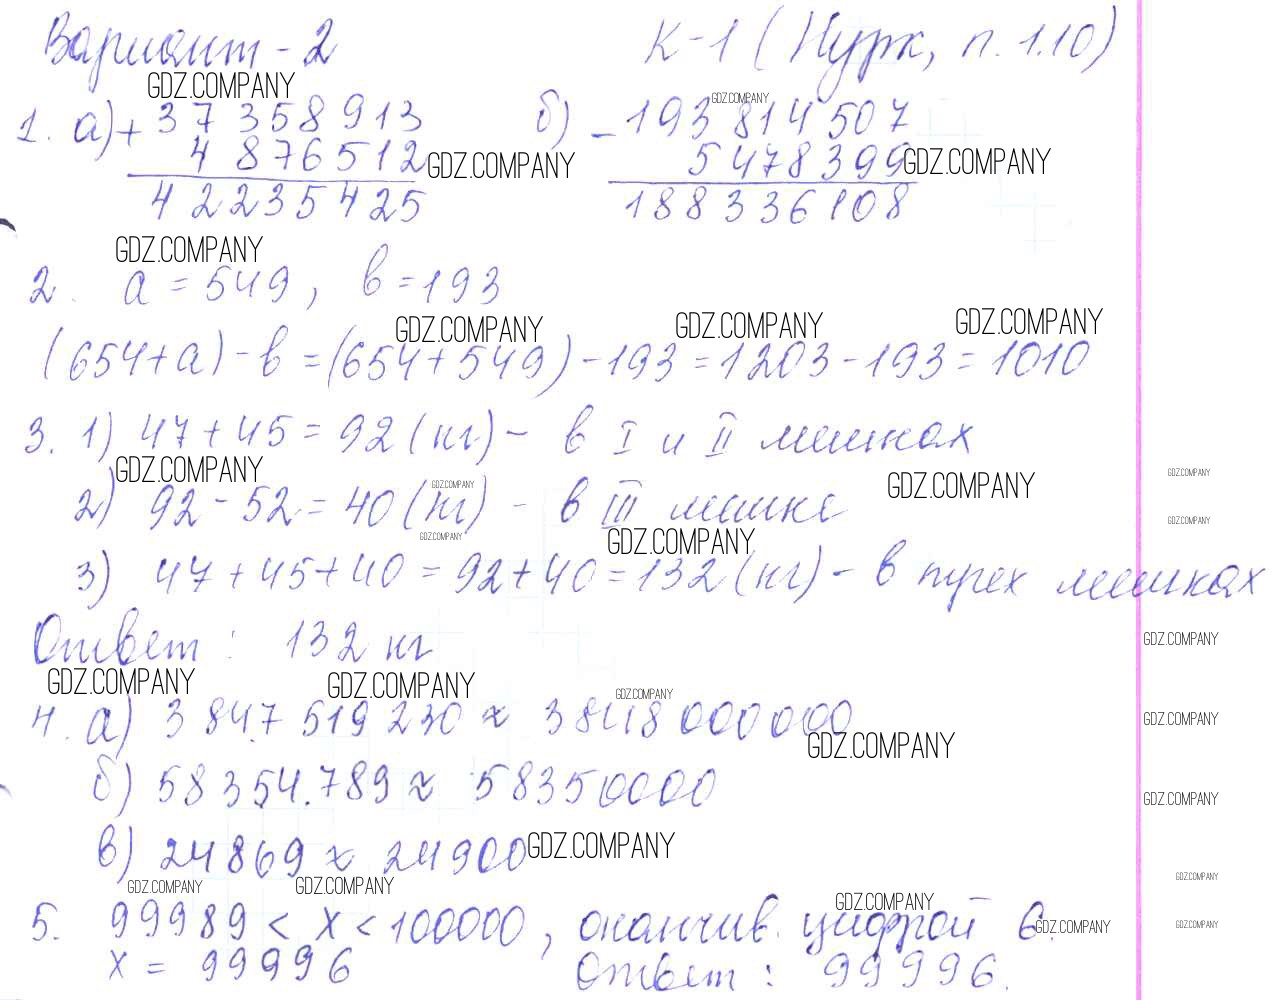 Вариант - 2 К-1 (Нурк, п. 1.10)
GDZ.COMPANY GDZ.COMPANY
1. а) + 37 358 913 б) - 193 814 507
4 876 512 GDZ.COMPANY 5 478 399 GDZ.COMPANY
42235425 188336108
GDZ.COMPANY
2. а = 549, в = 193
GDZ.COMPANY GDZ.COMPANY GDZ.COMPANY
(654+а) - в = (654 + 549) - 193 = 1203 - 193 = 1010
3. 1) 47 + 45 = 92 (кг) - в I и II мешках
GDZ.COMPANY GDZ.COMPANY GDZ.COMPANY GDZ.COMPANY
2) 92 - 52 = 40 (кг) - в III мешке
GDZ.COMPANY
GDZ.COMPANY GDZ.COMPANY
3) 47 + 45 + 40 = 92 + 40 = 132 (кг) - в трех мешках
Ответ: 132 кг
GDZ.COMPANY
GDZ.COMPANY GDZ.COMPANY GDZ.COMPANY
4. а) 3 847 519 230 ≈ 3848 000 000
GDZ.COMPANY
GDZ.COMPANY
б) 58 354.789 ≈ 58350000
GDZ.COMPANY
в) 24869 ≈ 24900 GDZ.COMPANY
GDZ.COMPANY GDZ.COMPANY GDZ.COMPANY
GDZ.COMPANY
5. 99989 < х < 100000, оканчив. цифрой 6. GDZ.COMPANY GDZ.COMPANY
х = 99996 Ответ: 99996.